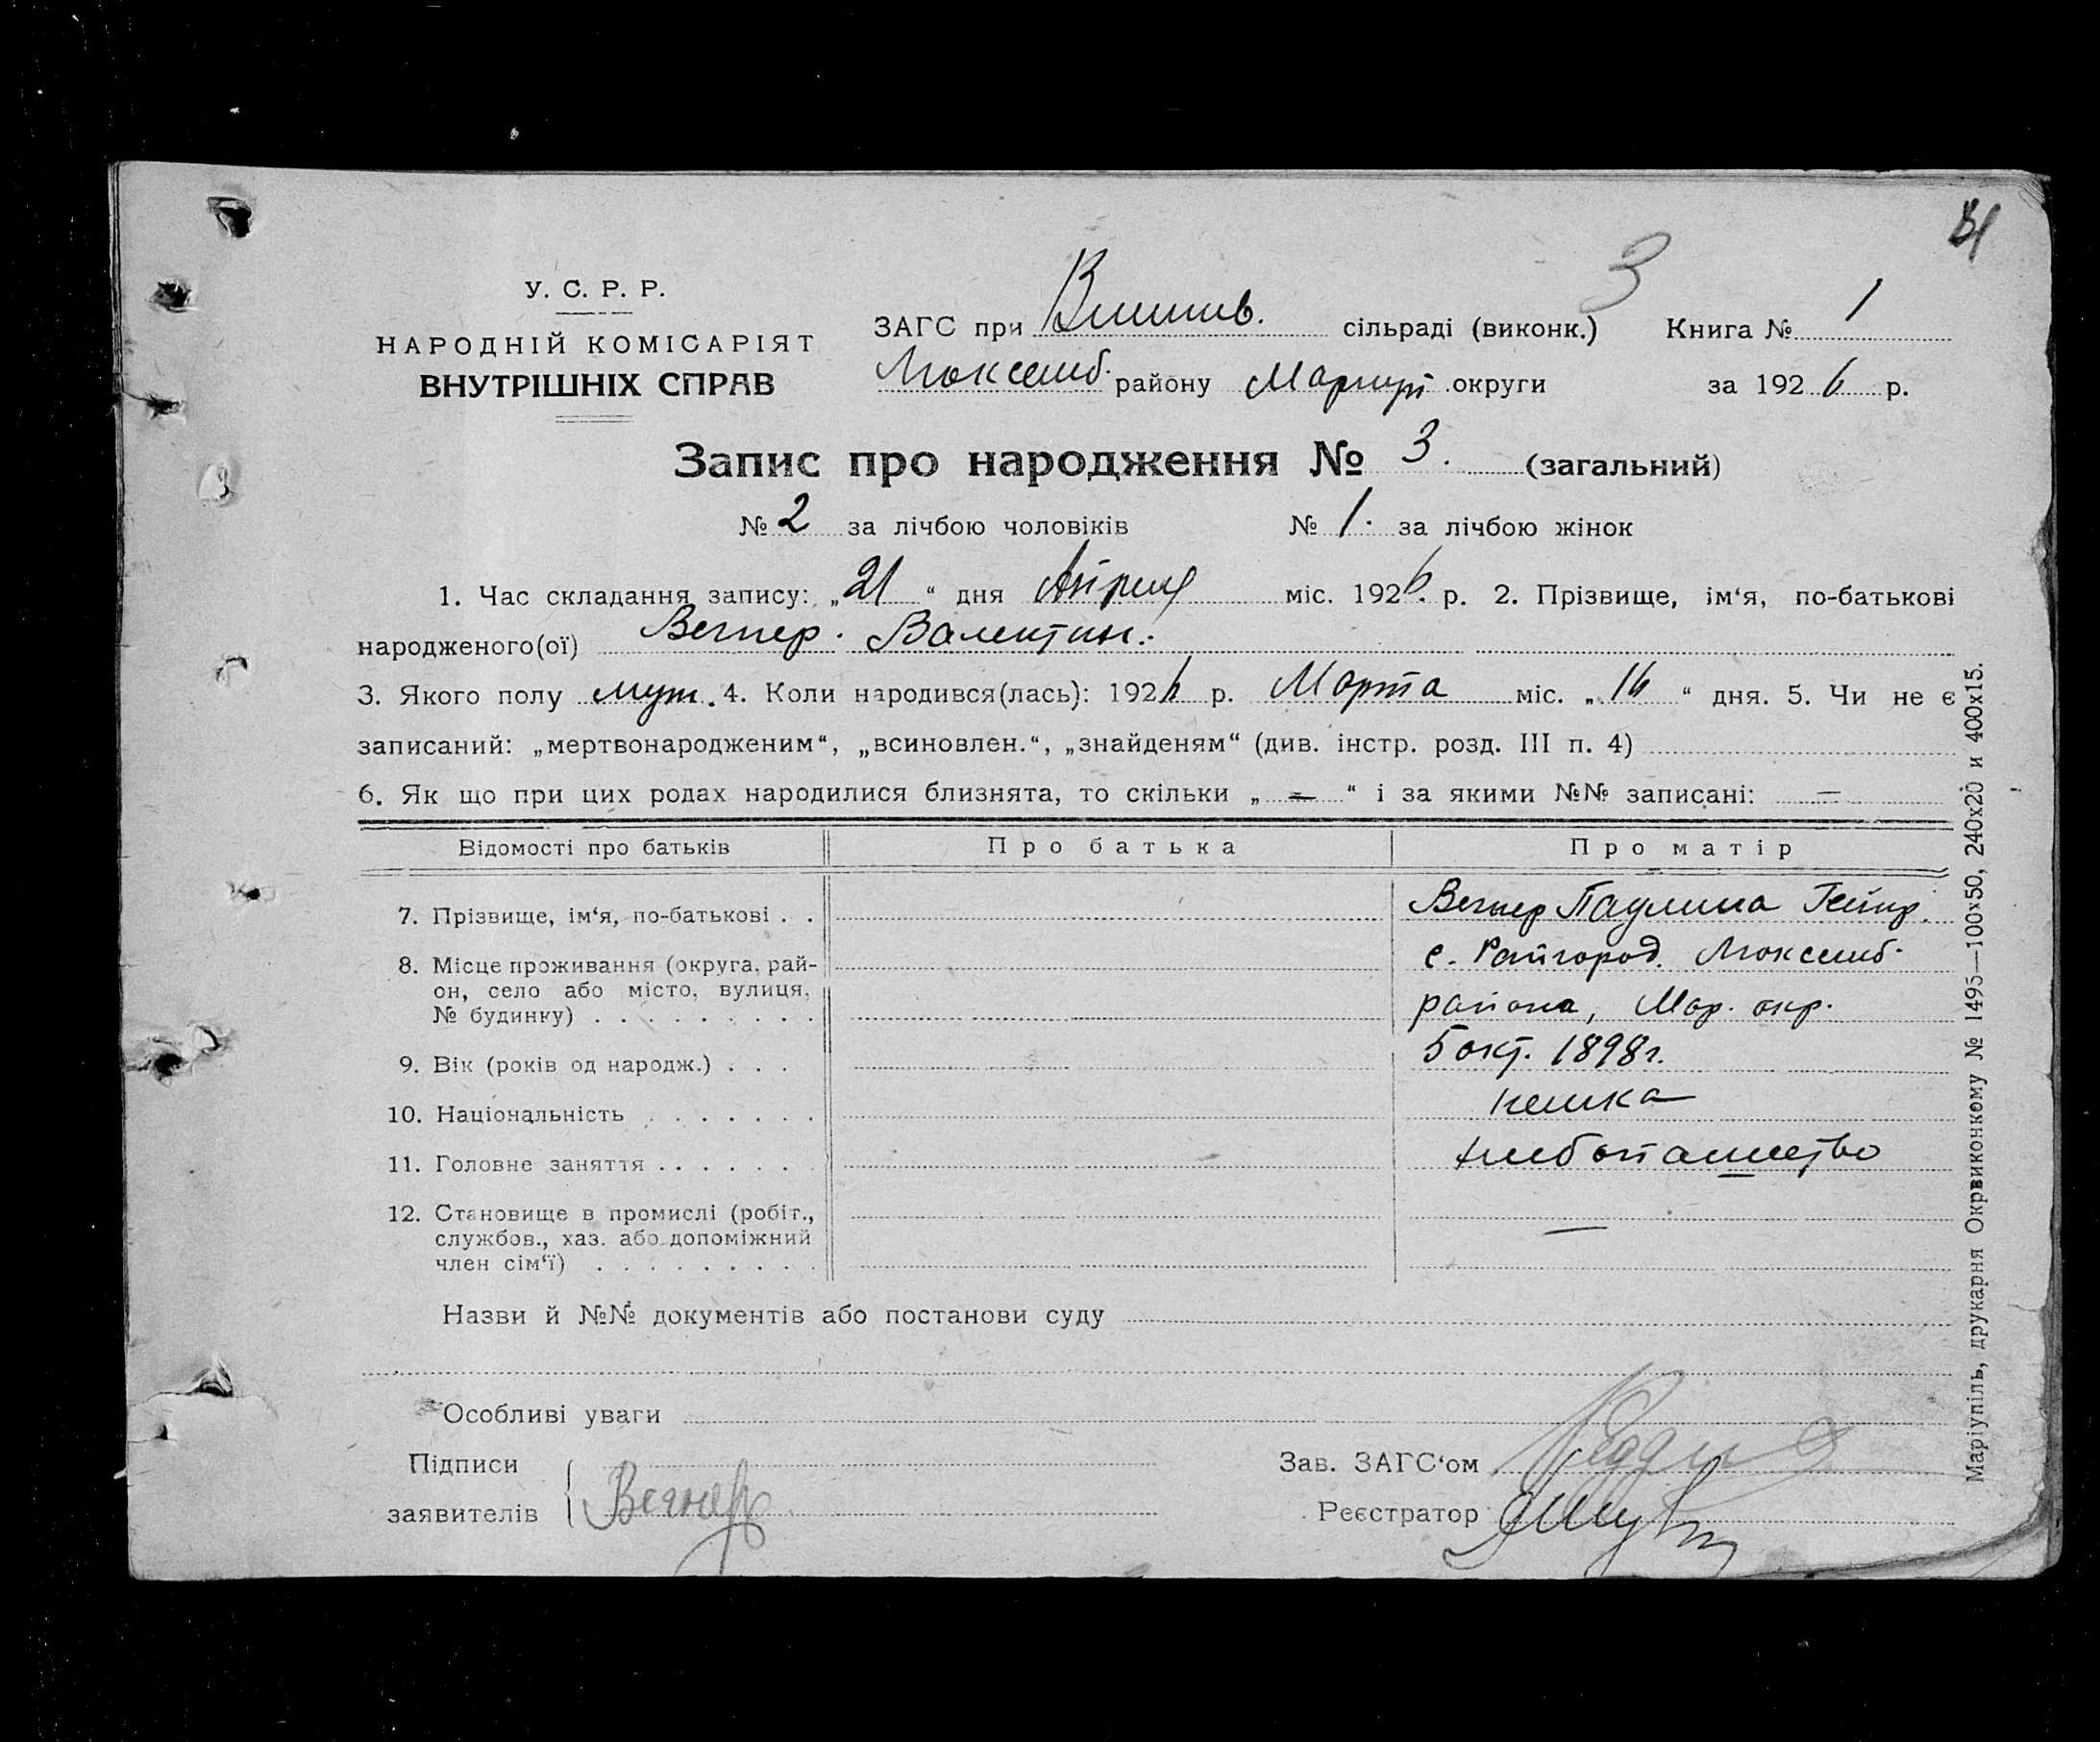 31
3
У. С. Р. Р.
НАРОДНІЙ КОМІСАРІЯТ
ВНУТРІШНІХ СПРАВ
ЗАГС при сільраді (виконк.) Книга № 1
Люксемб. району Мариуп округи за 1926 р.
Запис про народження № 3. (загальний)
№ 2 за лічбою чоловіків № 1. за лічбою жінок
1. Час складання запису: „21“ дня Апреля міс. 1926. р. 2. Прізвище, ім‘я, по-батькові
народженого(ої) Вегнер. Валентин.
3. Якого полу муж. 4. Коли народився(лась): 1926 р. Марта міс. „16“ дня. 5. Чи не є
записаний: „мертвонародженим“, „всиновлен.“, „знайденям“ (див. інстр. розд. III п. 4)
6. Як що при цих родах народилися близнята, то скільки „ = “ і за якими №№ записані: =
Відомості про батьків Про батька Про матір
7. Прізвище, ім‘я, по-батькові . . Вегнер Паулина Генр.
8. Місце проживання (округа, рай- с. Райгород. Люксемб.
он, село або місто, вулиця, района, Мар. окр.
№ будинку) . . . . . . . . .
9. Вік (років од народж.) . . . 5 окт. 1898г.
10. Національність . . . . . . . немка
11. Головне заняття . . . . . . хлебопашество
12. Становище в промислі (робіт., —
службов., хаз. або допоміжний
член сім‘ї) . . . . . . . . .
Назви й №№ документів або постанови суду
Особливі уваги
Підписи
заявителів Вегнер
Зав. ЗАГС‘ом
Реєстратор
Маріупіль, друкарня Окрвиконкому № 1495—100х50, 240х20 и 400х15.